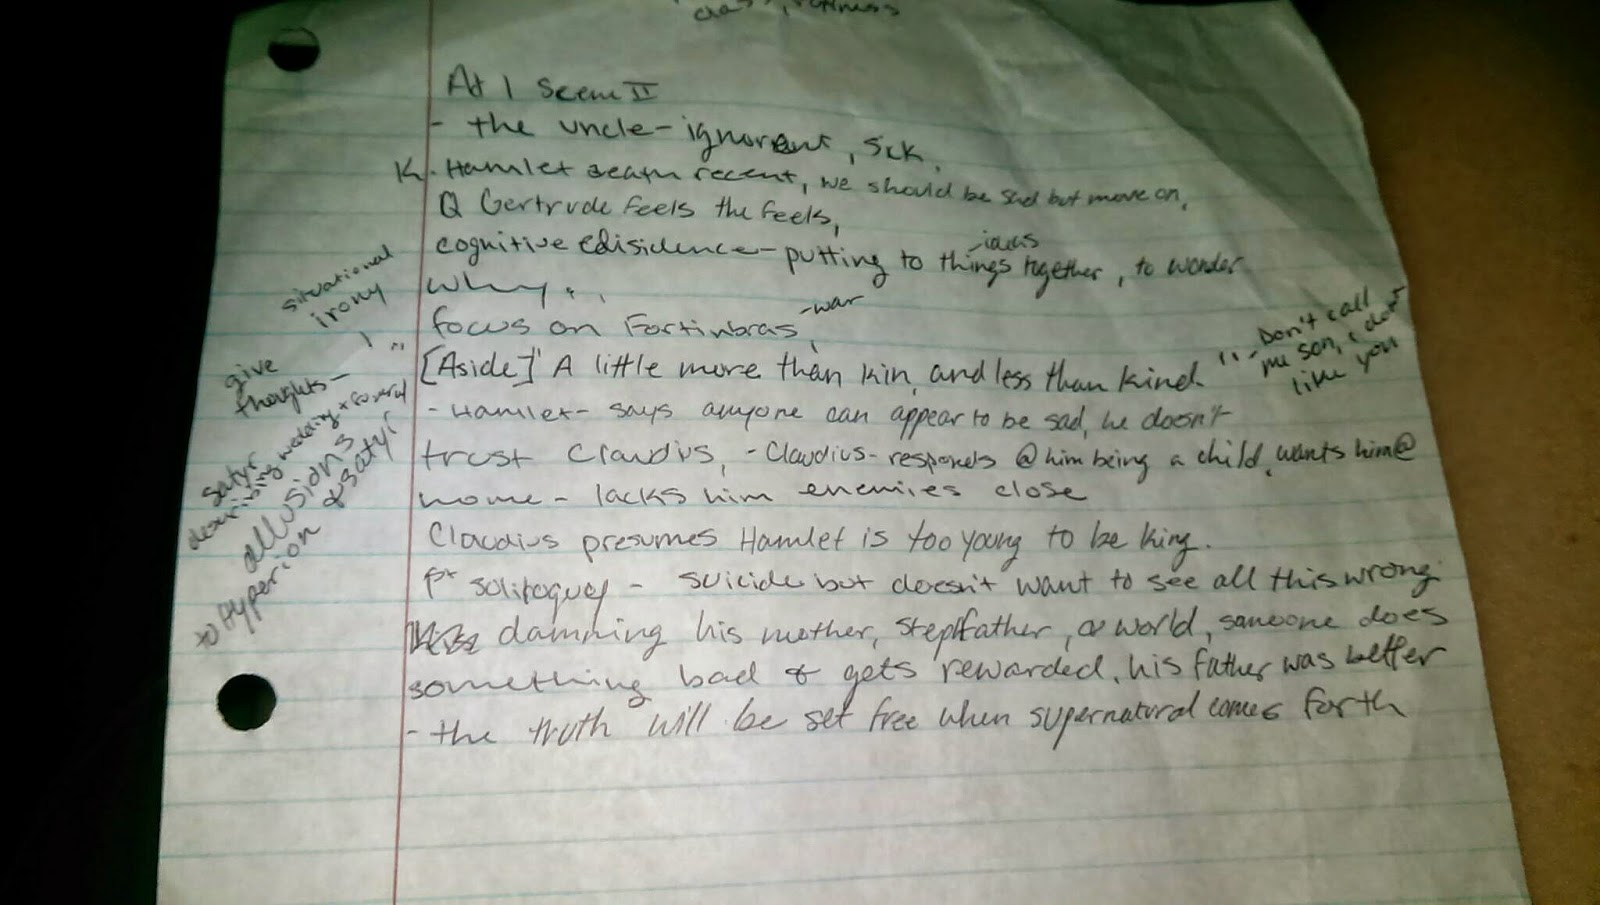 At 1 Scene II
- the uncle - ignorent, sick.
K. Hamlet death recent, we should be sad but move on,
Q Gertrude feels the feels,
cognitive disidence - putting to things together, to wonder
why...
- war
focus on Fortinbras,
[Aside] "A little more than kin, and less than kind."
- Don't call
me son, I don't
like you
- Hamlet - says anyone can appear to be sad, he doesn't
trust Claudius, - Claudius - responds @ him being a child, wants him @
home - lacks him enemies close
Claudius presumes Hamlet is too young to be king.
soliloquey - suicide but doesn't want to see all this wrong
damning his mother, stepfather, & world, someone does
something bad & gets rewarded, his father was better
- the truth will be set free when supernatural comes forth
situational
irony
give
thoughts -
satyr
wedding + funeral
allusions
to Hyperion & satyr